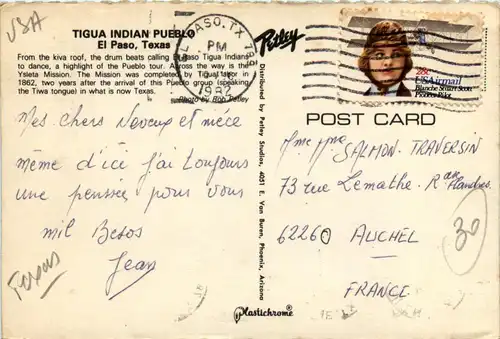 USA
TIGUA INDIAN PUEBLO
El Paso, Texas
From the kiva roof, the drum beats calling El Paso Tigua Indians
to dance, a highlight of the Pueblo tour. Across the way is the
Ysleta Mission. The Mission was completed by Tigua labor in
1862, two years after the arrival of this Pueblo group (speaking
the Tiwa tongue) in what is now Texas.
Photo by Rob Petley
EL PASO, TX
PM
1982
Petley
28c
USAirmail
Blanche Stuart Scott
Pioneer Pilot
Distributed by Petley Studios, 4051 E. Van Buren, Phoenix, Arizona
Plastichrome
POST CARD
Mes chers Neveux et niece
même d'ici j'ai toujours
une pensée pour vous
mil Besos
Jean
Texas
SALMON-TRAVERSIN
73 rue Lemathe-
62260 AUCHEL
FRANCE
30